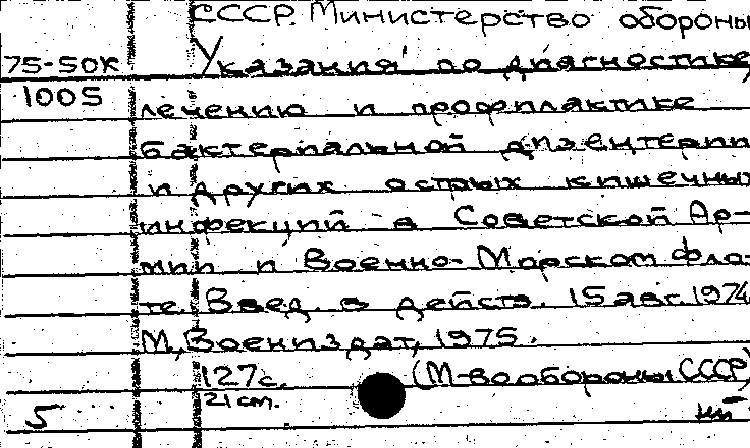 СССР. Министерство обороны
75-50к Указания по диагностике,
1005 лечению и профилактике
бактериальной дизентерии
и других острых кишечных
инфекций в Советской Ар-
мии и Военно-Морском Фло-
те. Введ. в действ. 15 авг. 1974
М., Воениздат, 1975.
127 с. (М-во обороны СССР)
21 см.
5